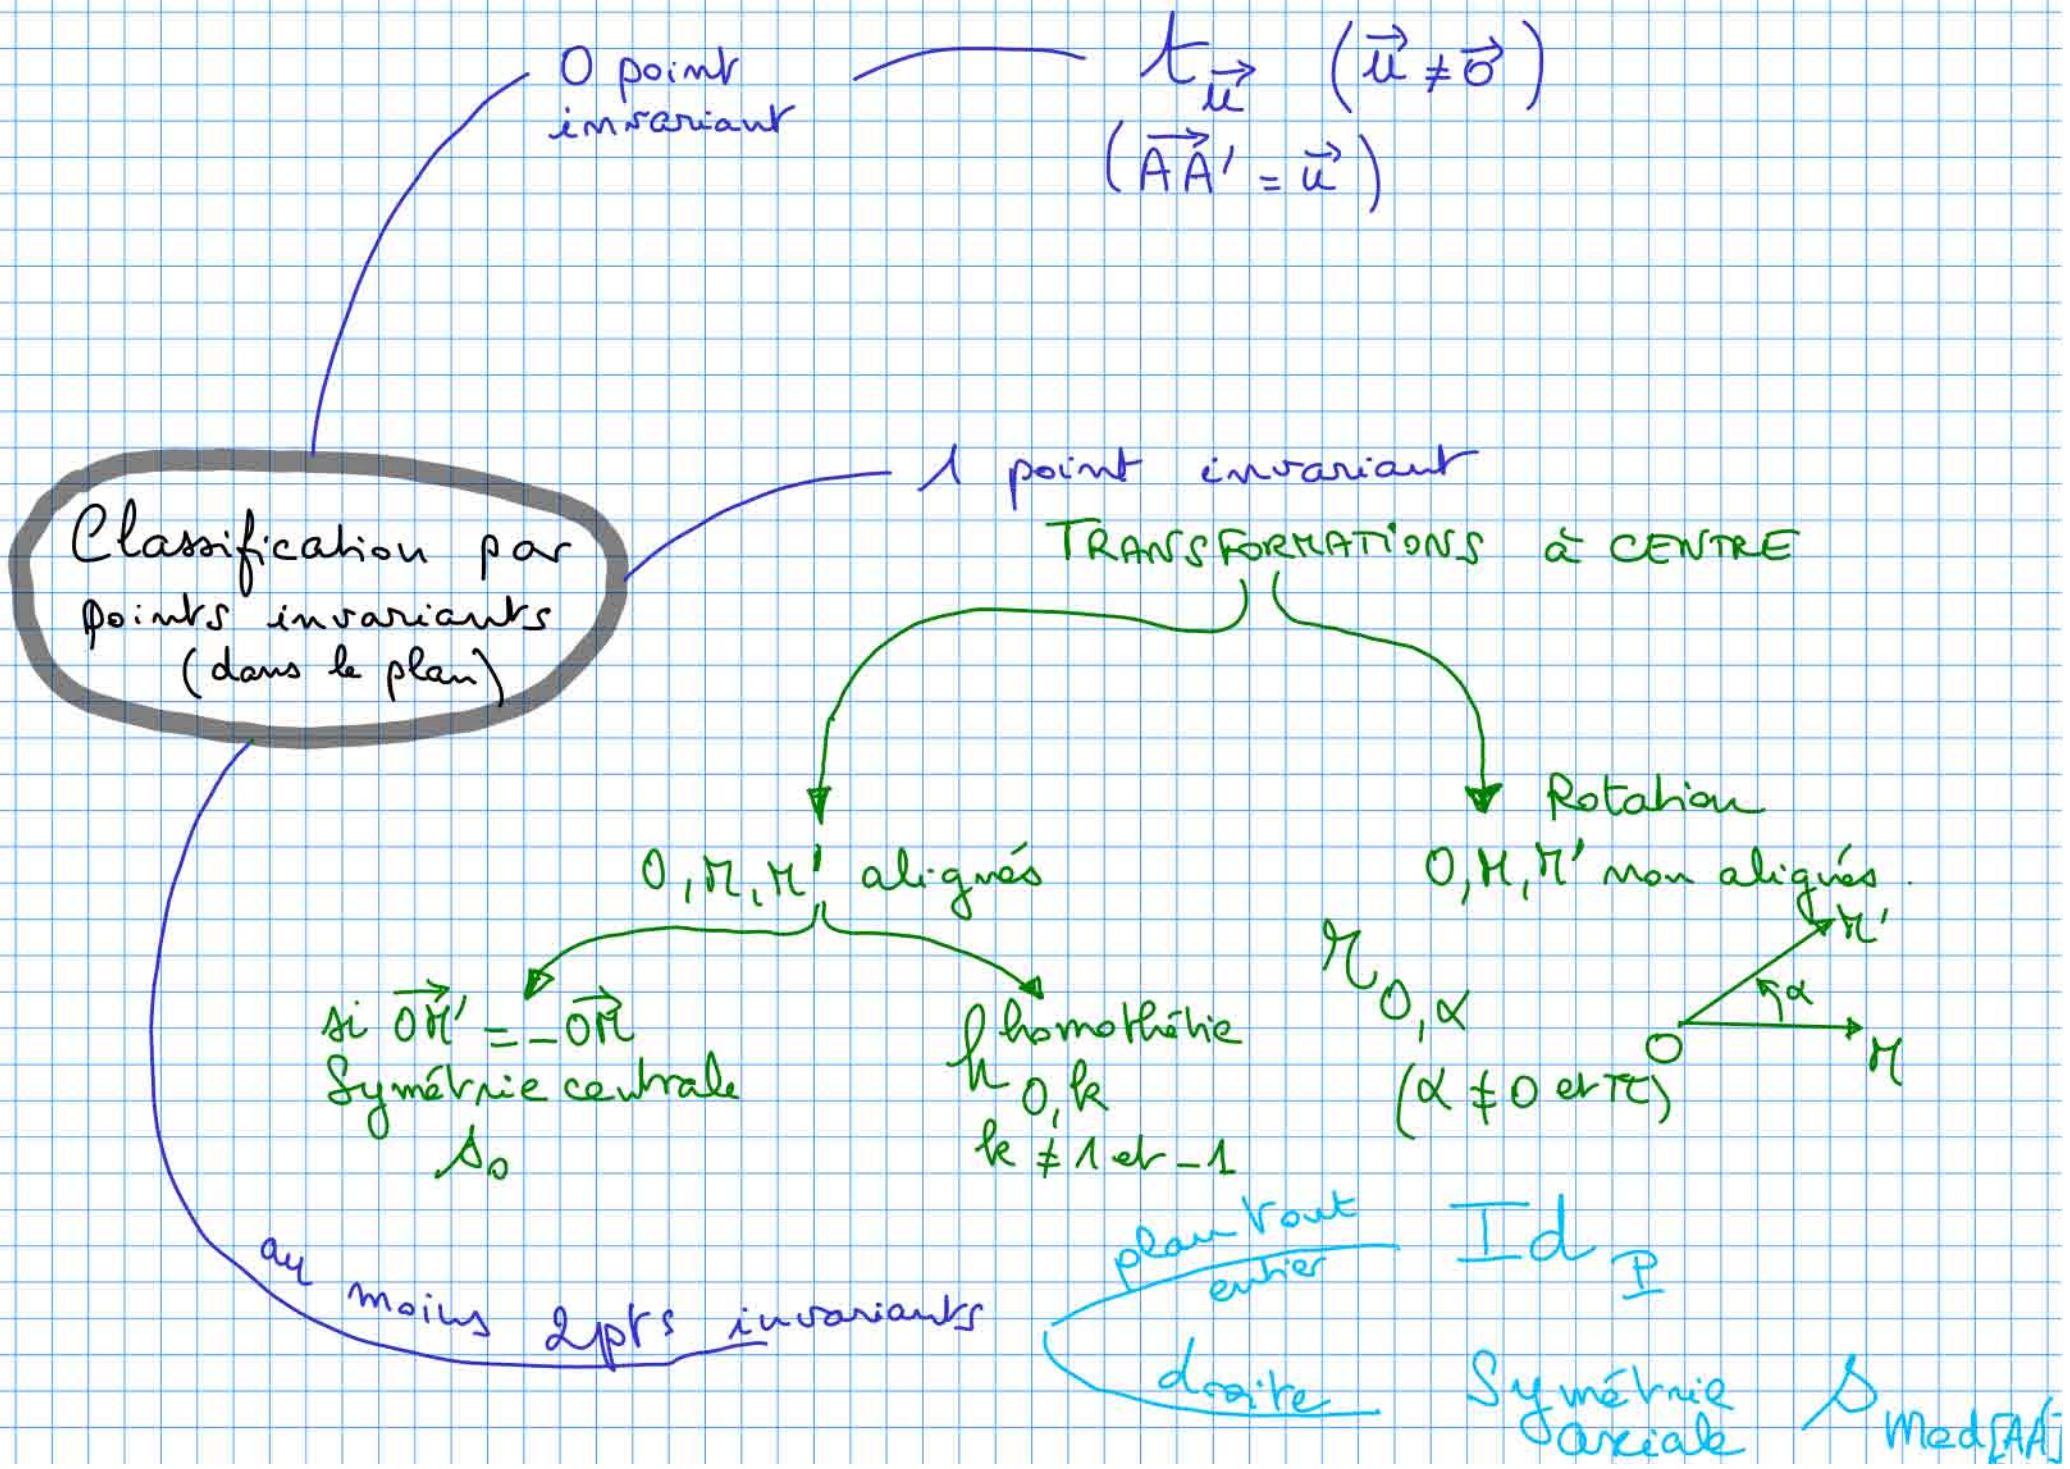 0 point
invariant
t_{\vec{u}} (\vec{u} ≠ \vec{0})
(\vec{AA'} = \vec{u})
Classification par
points invariants
(dans le plan)
1 point invariant
TRANSFORMATIONS à CENTRE
O, M, M' alignés
si \vec{OM'} = -\vec{OM}
Symétrie centrale
s_O
homothétie
h_{O,k}
k ≠ 1 et -1
Rotation
O, M, M' non alignés.
r_{O,α}
(α ≠ 0 et π)
M'
α
O
M
au moins 2 pts invariants
plan tout
entier
Id_P
droite
Symétrie
axiale
S_{Med[AA']}